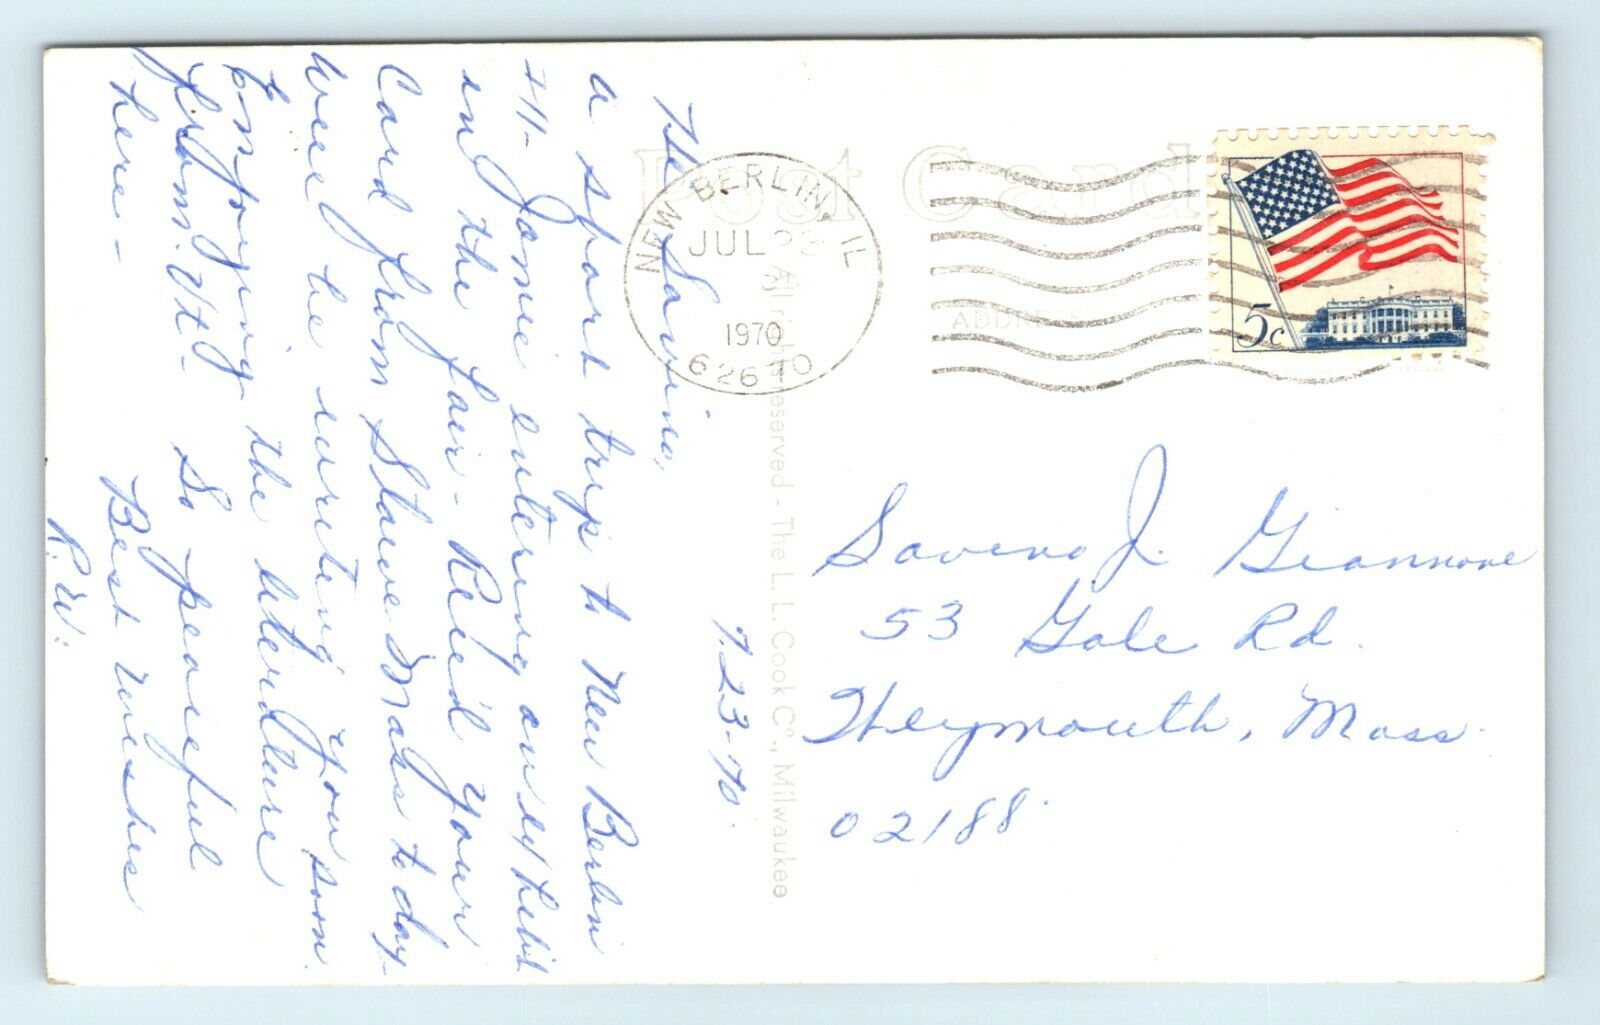 Hi Savino,
a short trip to New Berlin
Il- Jamie entering an exhibit
in the fair - Rec'd your
Card from Stowe Mass today-
Will be writing you soon.
Enjoying the literature
from Vt- So peaceful
here -
Best wishes
R.W.
7.23-70.
Post Card
ADDRESS
NEW BERLIN, IL
JUL 23
1970
62670
5c
All rights reserved - The L. L. Cook Co., Milwaukee
Saveno J. Giannone
53 Gale Rd.
Weymouth, Mass.
02188